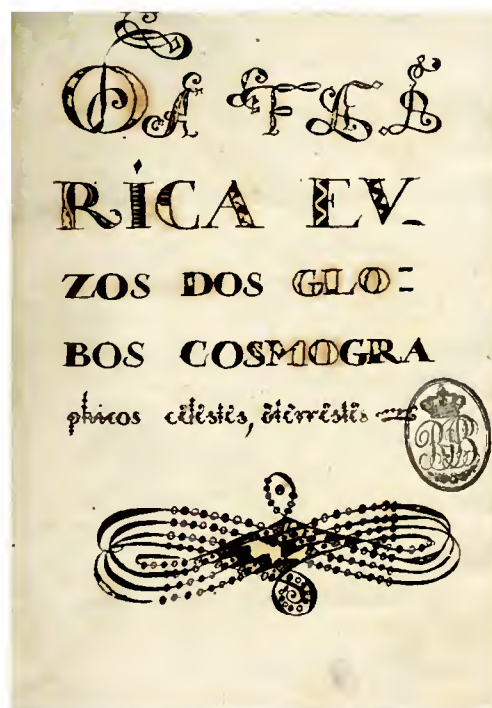 DA FAB
RICA EV-
ZOS DOS GLO=
BOS COSMOGRA
phicos celestes, eterrestes